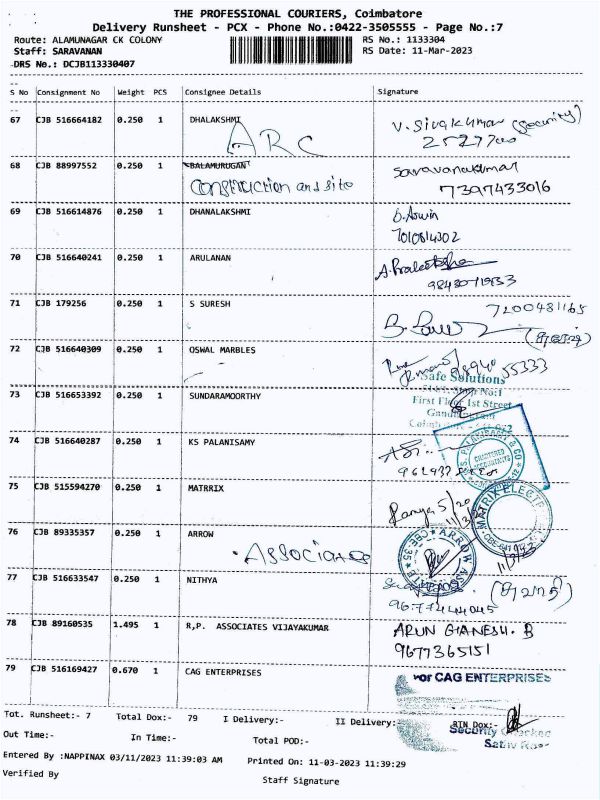 THE PROFESSIONAL COURIERS, Coimbatore
Delivery Runsheet - PCX - Phone No.:0422-3505555 - Page No.:7
Route: ALAMUNAGAR CK COLONY RS No.: 1133304
Staff: SARAVANAN RS Date: 11-Mar-2023
DRS No.: DCJB11333040​7
S No Consignment No Weight PCS Consignee Details Signature
67 CJB 516664182 0.250 1 DHALAKSHMI V. Sivakumar (Security)
ARC
68 CJB 88997552 0.250 1 BALAMURUGAN Saravanakumar
Construction and site 7397433016
69 CJB 516614876 0.250 1 DHANALAKSHMI B. Aswin
7010814302
70 CJB 516640241 0.250 1 ARULANAN
71 CJB 179256 0.250 1 S SURESH 7200481165
72 CJB 516640309 0.250 1 OSWAL MARBLES
55333
Safe Solutions
73 CJB 516653392 0.250 1 SUNDARAMOORTHY First Floor 1st Street
74 CJB 516640287 0.250 1 KS PALANISAMY
CHARTERED ACCOUNTANTS
75 CJB 515594270 0.250 1 MATRRIX Ramya
MATRIX
76 CJB 89335357 0.250 1 ARROW
Associates
ARROW
77 CJB 516633547 0.250 1 NITHYA
78 CJB 89160535 1.495 1 R,P. ASSOCIATES VIJAYAKUMAR ARUN GANESH. B
9677365151
79 CJB 516169427 0.670 1 CAG ENTERPRISES For CAG ENTERPRISES
Tot. Runsheet:- 7 Total Dox:- 79 I Delivery:- II Delivery: RTN Dox:-
Security Checked
Out Time:- In Time:- Total POD:-
Entered By :NAPPINAX 03/11/2023 11:39:03 AM Printed On: 11-03-2023 11:39:29
Verified By Staff Signature